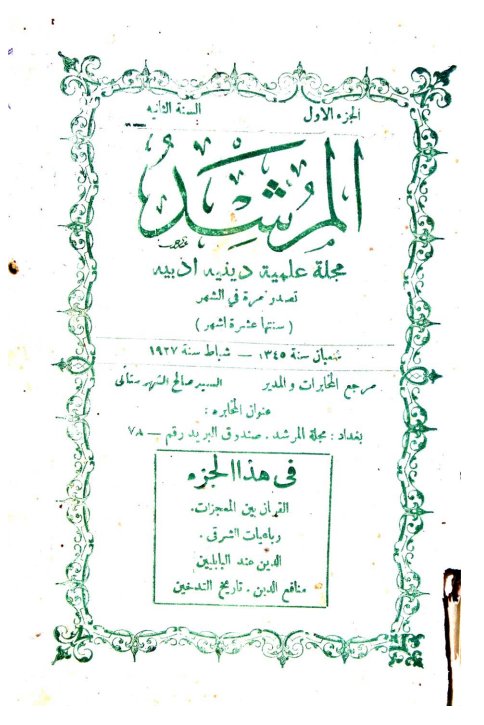 الجزء الاول السنة الثانيه
المرشد
مجلة علمية دينيه ادبيه
تصدر مرة في الشهر
( سنتها عشرة اشهر )
شعبان سنة ١٣٤٥ — شباط سنة ١٩٢٧
مرجع المخابرات والمدير السيد صالح الشهرستاني
عنوان المخابره :
بغداد : مجلة المرشد . صندوق البريد رقم —
في هذا الجزء
القرآن بين المعجزات.
رباعيات الشرقي .
الدين عند البابليين
منافع الدين . تاريخ التدخين